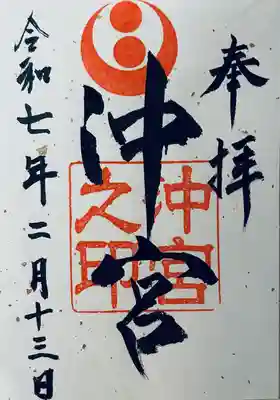 奉拝
沖宮
沖宮
之印
令和七年二月十三日